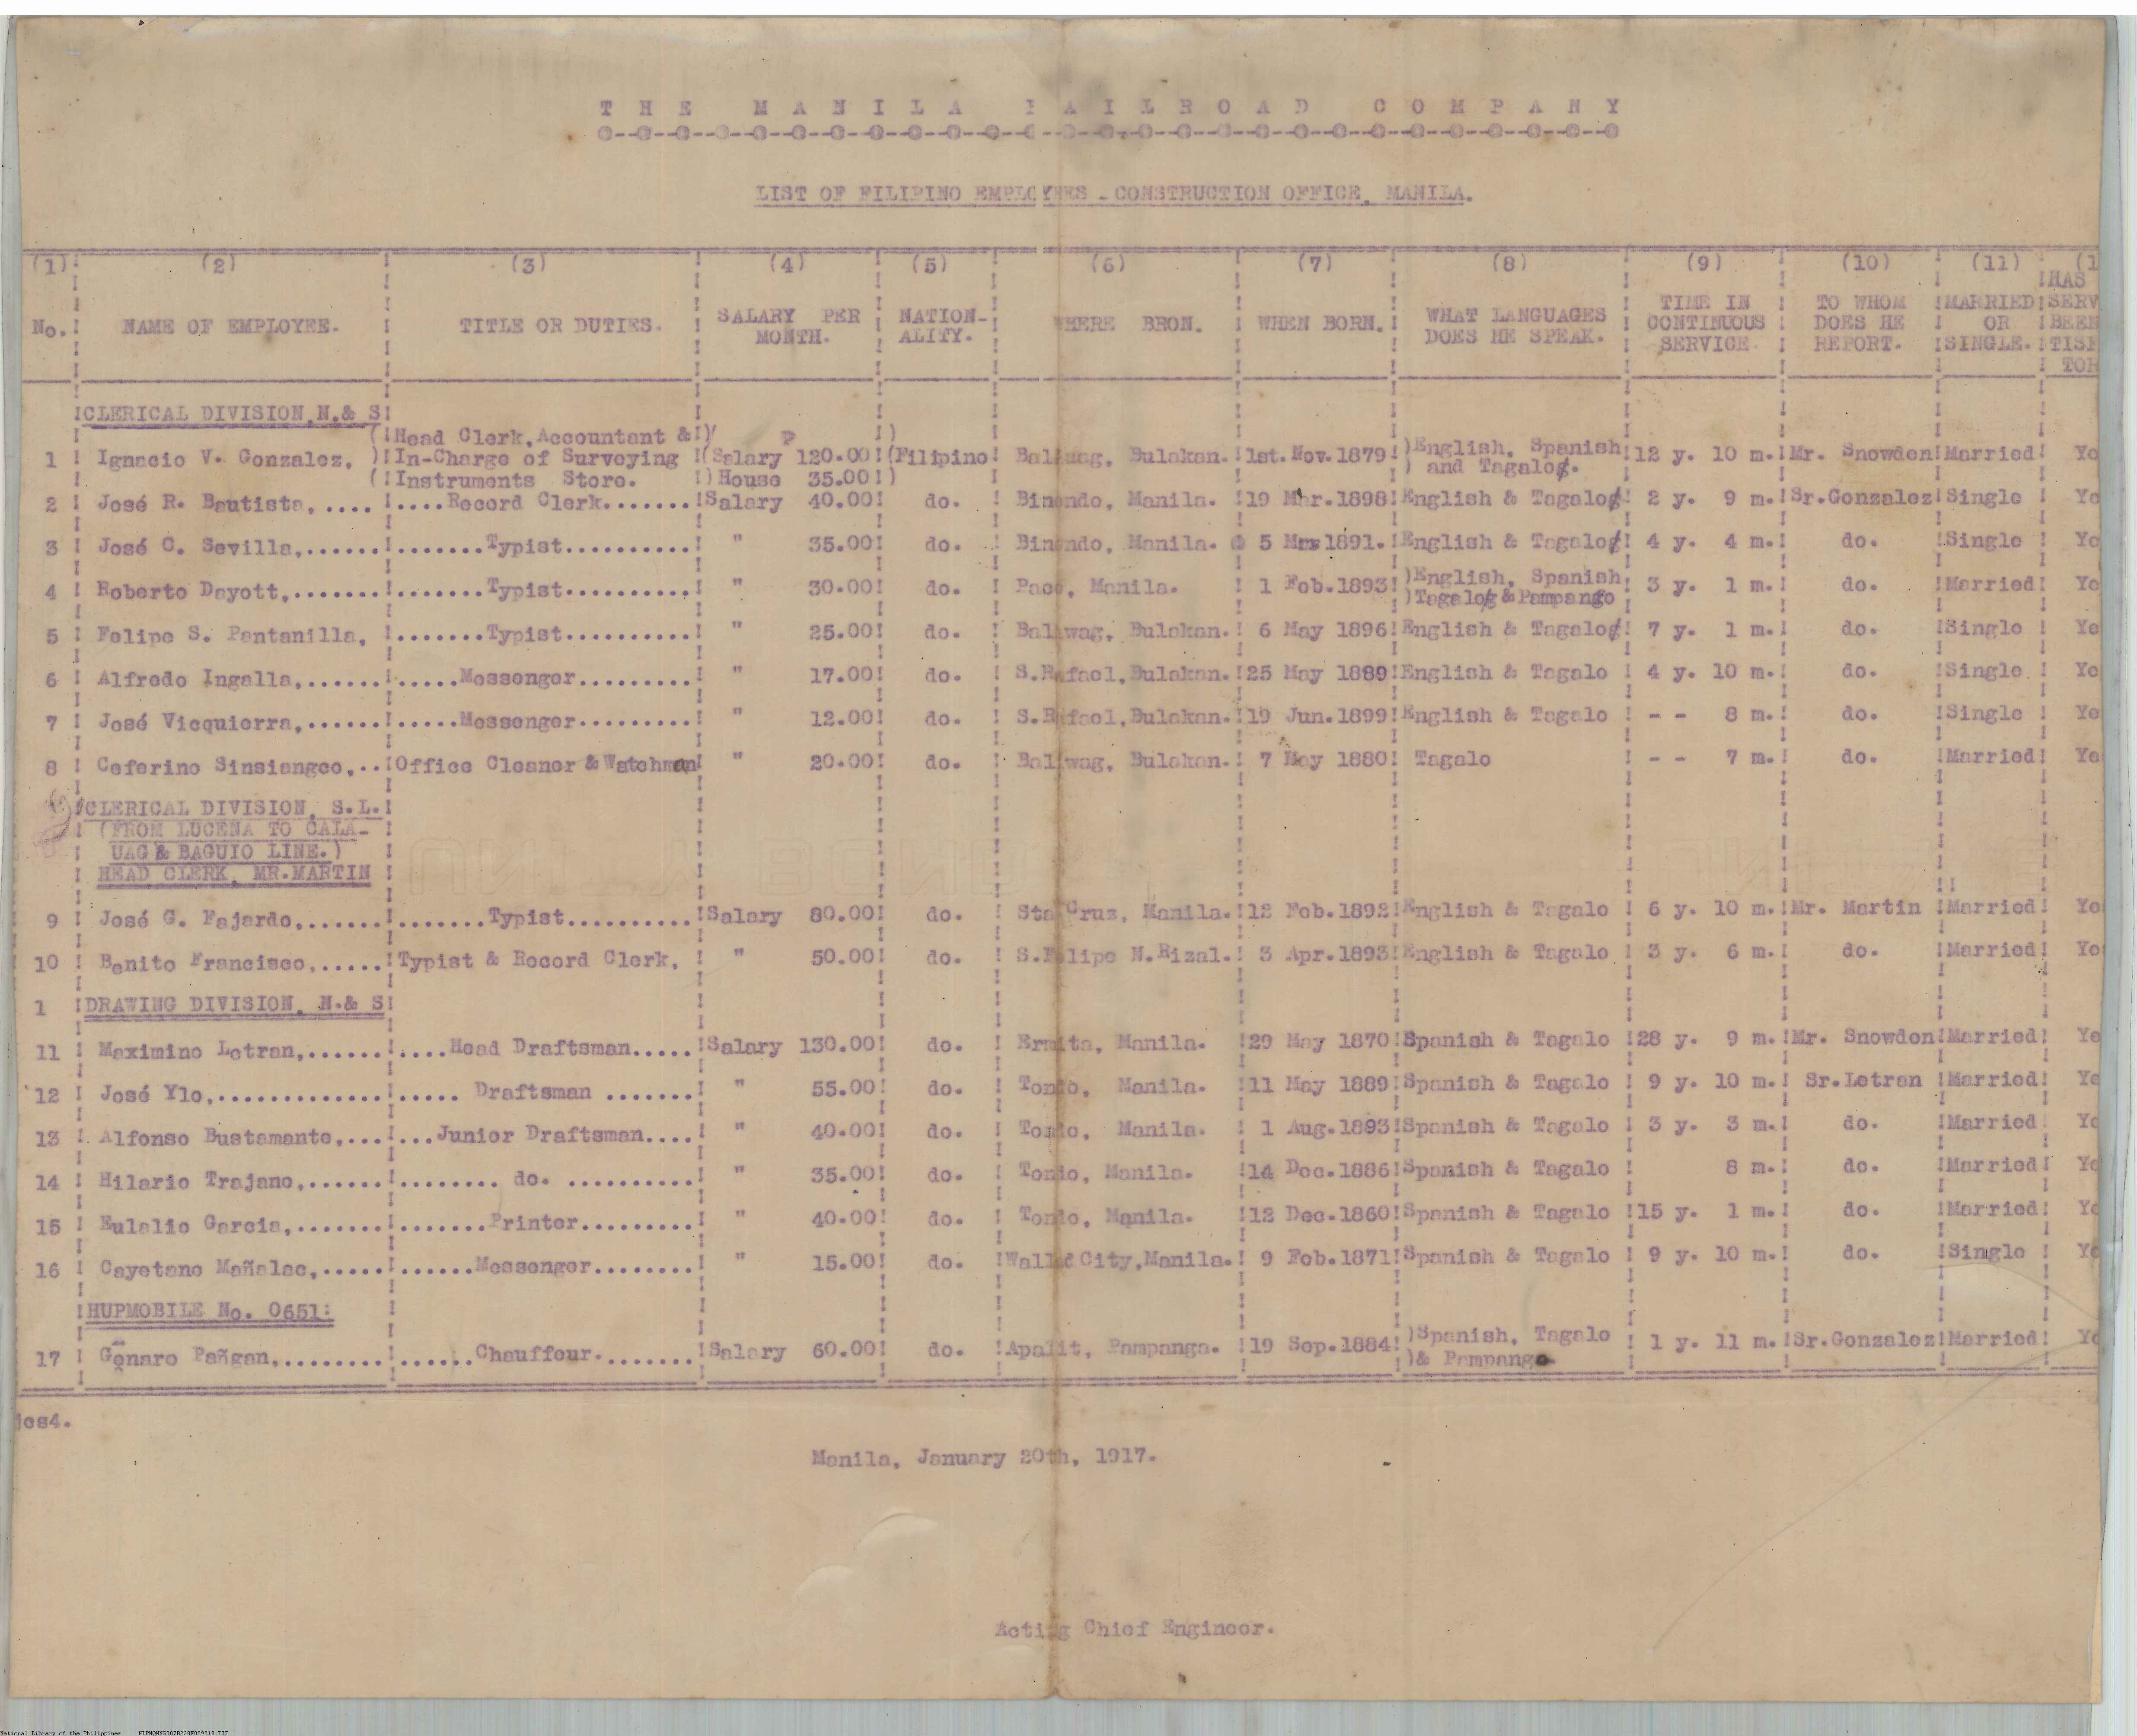 THE MANILA RAILROAD COMPANY
LIST OF FILIPINO EMPLOYEES - CONSTRUCTION OFFICE, MANILA.
(1) (2) (3) (4) (5) (6) (7) (8) (9) (10) (11) (1
No. NAME OF EMPLOYEE. TITLE OR DUTIES. SALARY PER MONTH. NATION-ALITY. WHERE BRON. WHEN BORN. WHAT LANGUAGES DOES HE SPEAK. TIME IN CONTINUOUS SERVICE. TO WHOM DOES HE REPORT. MARRIED OR SINGLE. HAS SERV BEEN TISF TOR
CLERICAL DIVISION, N.& S
(Head Clerk, Accountant & ) ₱ )
1 Ignacio V. Gonzalez, ) In-Charge of Surveying (Salary 120.00 (Filipino Baliuag, Bulakan. 1st.Nov.1879 )English, Spanish ) and Tagalog. 12 y. 10 m. Mr. Snowden Married Ye
( Instruments Store. ) House 35.00 )
2 José R. Bautista, .... ....Record Clerk....... Salary 40.00 do. Binondo, Manila. 19 Mar.1898 English & Tagalog 2 y. 9 m. Sr.Gonzalez Single Ye
3 José C. Sevilla,...... .......Typist.......... " 35.00 do. Binondo, Manila. 5 Mar 1891. English & Tagalog 4 y. 4 m. do. Single Ye
4 Roberto Dayott,....... .......Typist.......... " 30.00 do. Paco, Manila. 1 Feb.1893 )English, Spanish )Tagalog & Pampango 3 y. 1 m. do. Married Ye
5 Felipe S. Pantanilla, .......Typist.......... " 25.00 do. Baliwag, Bulakan. 6 May 1896 English & Tagalog 7 y. 1 m. do. Single Ye
6 Alfredo Ingalla,...... .....Messenger......... " 17.00 do. S.Rafael,Bulakan. 25 May 1889 English & Tagalo 4 y. 10 m. do. Single Ye
7 José Vicquierra,...... .....Messenger......... " 12.00 do. S.Rafael,Bulakan. 19 Jun.1899 English & Tagalo - - 8 m. do. Single Ye
8 Ceferino Sinsiangco,.. Office Cleaner & Watchman " 20.00 do. Baliwag, Bulakan. 7 May 1880 Tagalo - - 7 m. do. Married Ye
CLERICAL DIVISION, S.L.
(FROM LUCENA TO CALA-
UAG & BAGUIO LINE.)
HEAD CLERK, MR.MARTIN
9 José G. Fajardo,....... .......Typist.......... Salary 80.00 do. Sta Cruz, Manila. 12 Feb.1892 English & Tagalo 6 y. 10 m. Mr. Martin Married Ye
10 Benito Francisco,...... Typist & Record Clerk, " 50.00 do. S.Felipe N.Rizal. 3 Apr.1893 English & Tagalo 3 y. 6 m. do. Married Ye
1 DRAWING DIVISION, N.& S
11 Maximino Letran,...... ....Head Draftsman..... Salary 130.00 do. Ermita, Manila. 29 May 1870 Spanish & Tagalo 28 y. 9 m. Mr. Snowden Married Ye
12 José Ylo,............. ..... Draftsman ....... " 55.00 do. Tondo, Manila. 11 May 1889 Spanish & Tagalo 9 y. 10 m. Sr.Letran Married Ye
13 Alfonso Bustamante,... ...Junior Draftsman.... " 40.00 do. Tondo, Manila. 1 Aug.1893 Spanish & Tagalo 3 y. 3 m. do. Married Ye
14 Hilario Trajano,...... ........ do. .......... " 35.00 do. Tondo, Manila. 14 Dec.1886 Spanish & Tagalo 8 m. do. Married Ye
15 Eulalio Garcia,....... .......Printer......... " 40.00 do. Tondo, Manila. 12 Dec.1860 Spanish & Tagalo 15 y. 1 m. do. Married Ye
16 Cayetano Mañalac,..... ......Messenger........ " 15.00 do. Walled City,Manila. 9 Feb.1871 Spanish & Tagalo 9 y. 10 m. do. Single Ye
HUPMOBILE No. 0651:
17 Genaro Pañgan,......... ......Chauffeur........ Salary 60.00 do. Apalit, Pampanga. 19 Sep.1884 )Spanish, Tagalo )& Pampango 1 y. 11 m. Sr.Gonzalez Married Ye
jcs4.
Manila, January 20th, 1917.
Acting Chief Engineer.
National Library of the Philippines NLPMQMNS007B238F009018.TIF